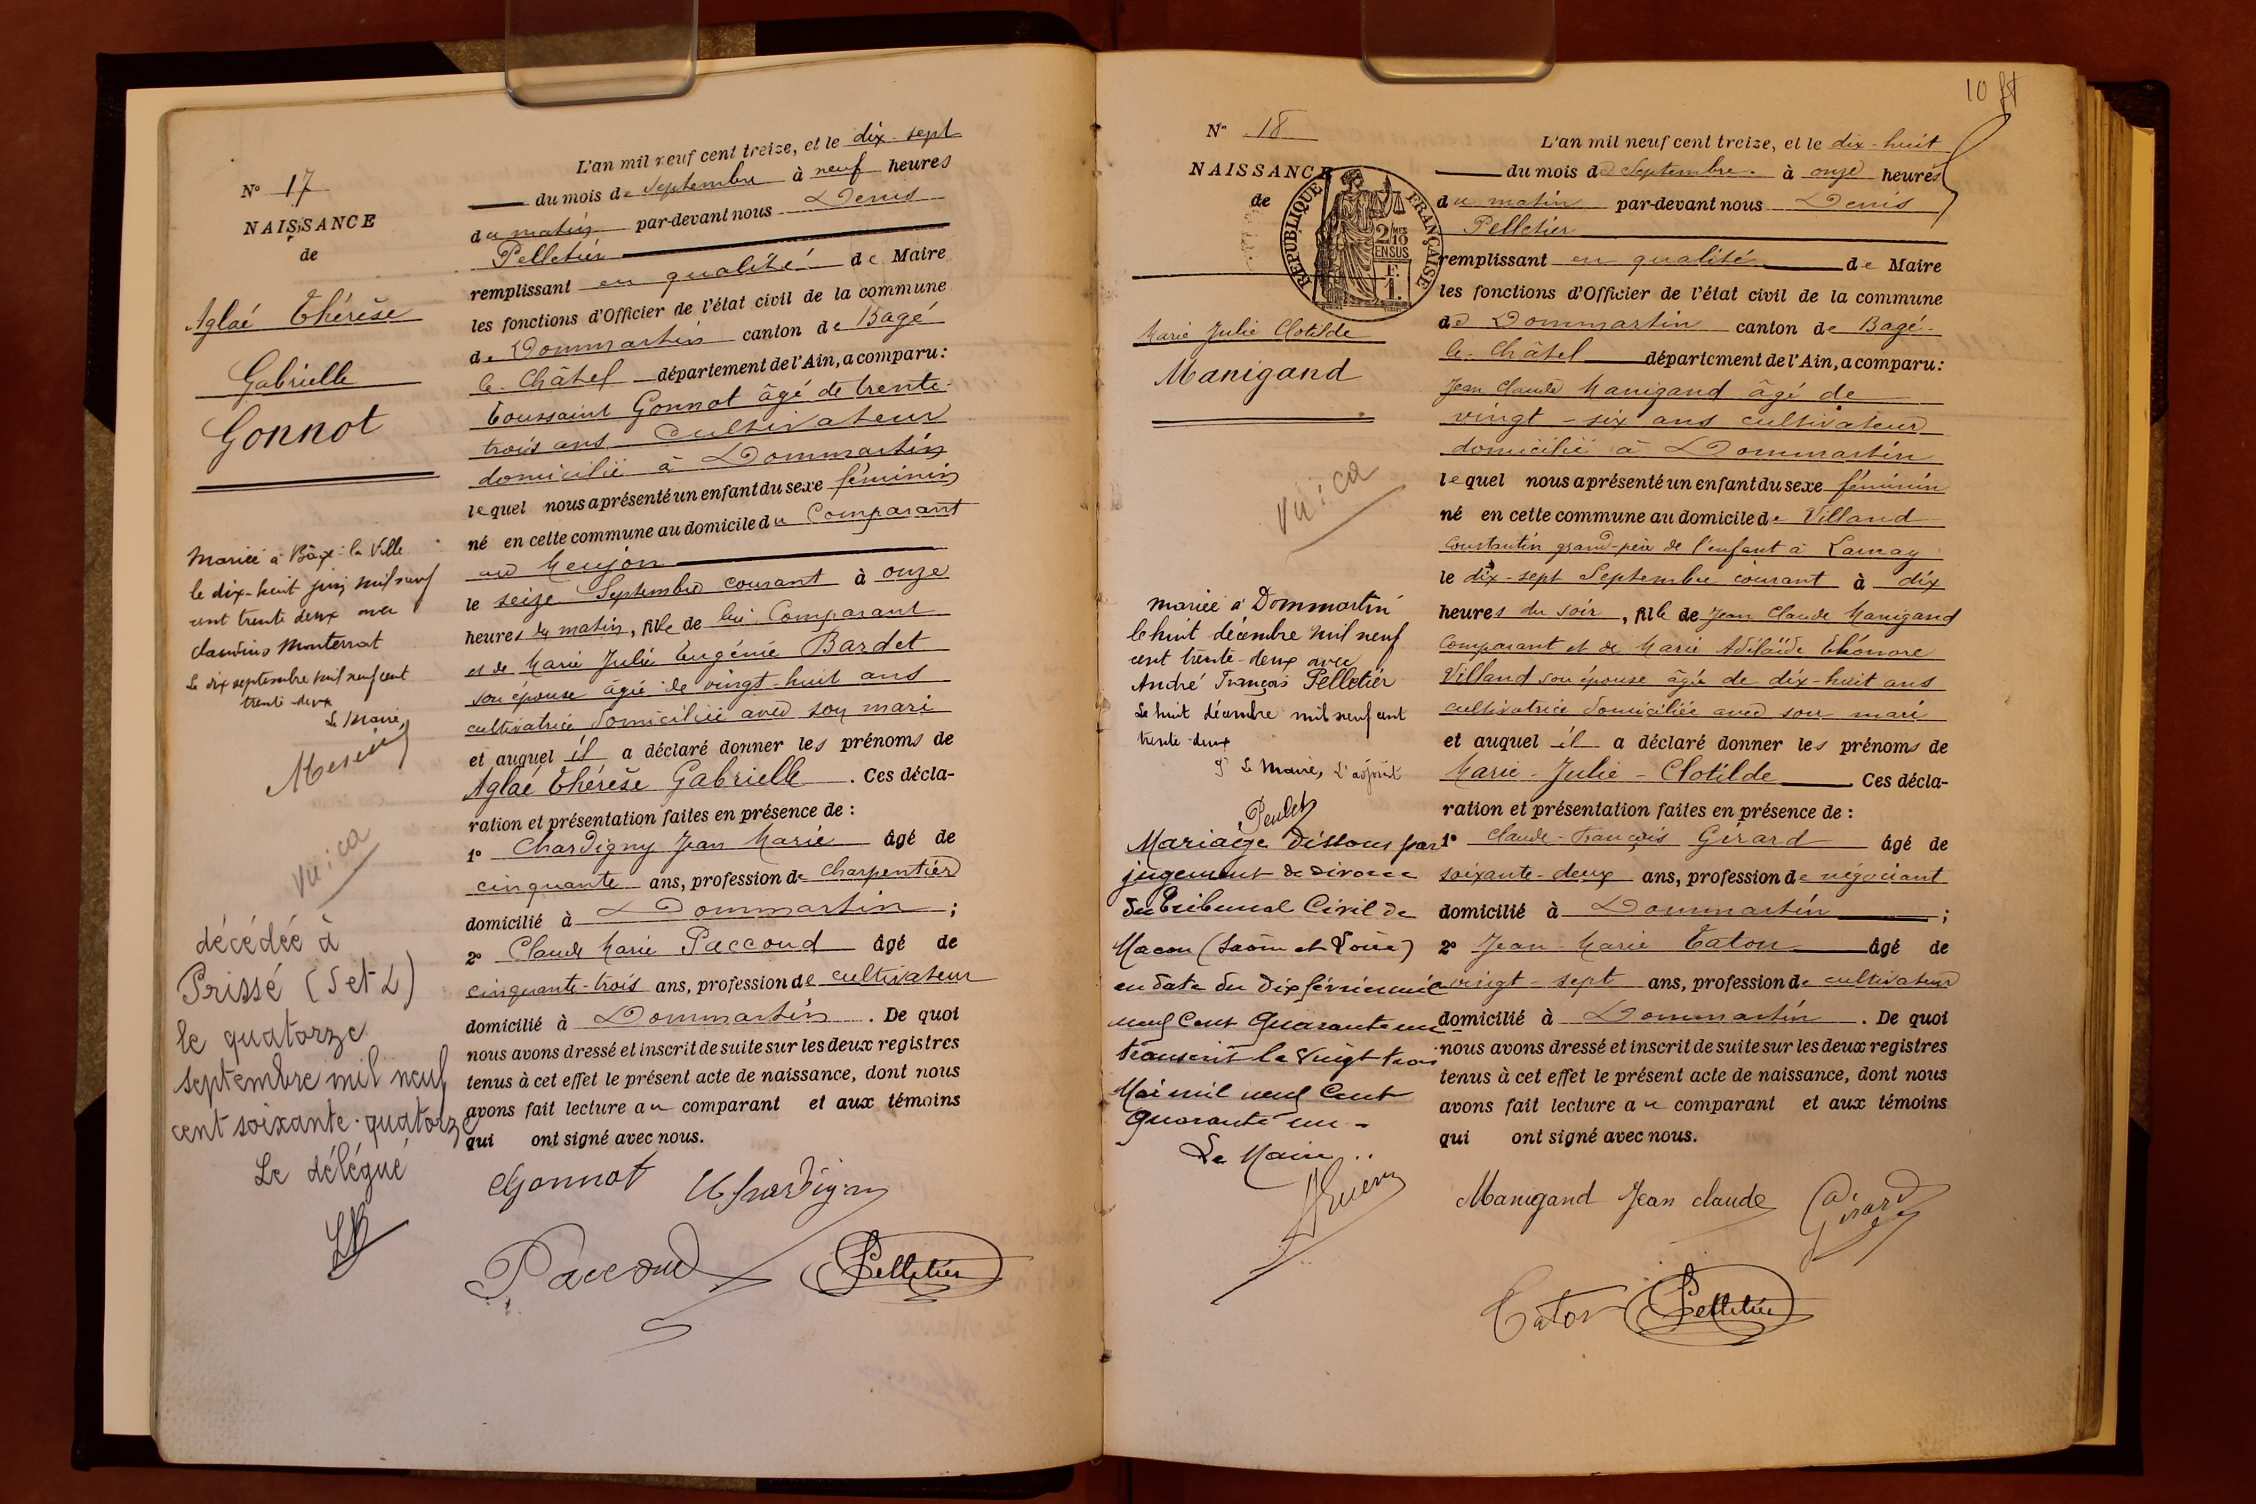 N° 17
NAISSANCE
de
Aglaé Thérèse
Gabrielle
Gonnot
Mariée à Bâgé-la Ville
le dix-huit juin mil neuf
cent trente deux avec
Claudius Monterrat
Le dix septembre mil neuf cent
trente deux
Le Maire,
vu : ca
décédée à
Prissé (S et L)
le quatorze
septembre mil neuf
cent soixante-quatorze
Le délégué
L'an mil neuf cent treize, et le dix-sept
du mois de Septembre à neuf heures
du matin par-devant nous Denis
Pelletier
remplissant en qualité de Maire
les fonctions d'Officier de l'état civil de la commune
de Dommartin canton de Bagé
le-Châtel département de l'Ain, a comparu :
Toussaint Gonnot âgé de trente-
trois ans cultivateur
domicilié à Dommartin
lequel nous a présenté un enfant du sexe féminin
né en cette commune au domicile du Comparant
au Meujon
le seize Septembre courant à onze
heures du matin, fille de lui Comparant
et de Marie Julie Eugénie Bardet
son épouse âgée de vingt-huit ans
cultivatrice domiciliée avec son mari
et auquel il a déclaré donner les prénoms de
Aglaé Thérèse Gabrielle . Ces décla-
ration et présentation faites en présence de :
1° Chardigny Jean Marie âgé de
cinquante ans, profession de Charpentier
domicilié à Dommartin ;
2° Claude Marie Paccoud âgé de
cinquante-trois ans, profession de cultivateur
domicilié à Dommartin . De quoi
nous avons dressé et inscrit de suite sur les deux registres
tenus à cet effet le présent acte de naissance, dont nous
avons fait lecture au comparant et aux témoins
qui ont signé avec nous.
Gonnot Chardigny
Paccoud Pelletier
10
N° 18
NAISSANCE
de
RÉPUBLIQUE FRANÇAISE
2/10
EN SUS
F.
1.
Marie Julie Clotilde
Manigand
vu : ca
Mariée à Dommartin
le huit décembre mil neuf
cent trente-deux avec
André François Pelletier
Le huit décembre mil neuf cent
trente-deux
Pr Le Maire, L'adjoint
Mariage dissous par
jugement de divorce
du Tribunal Civil de
Macon (Saône et Loire)
en date du dix février mil
neuf Cent Quarante un
transcrit le vingt trois
Mai mil neuf Cent
Quarante un -
Le Maire
L'an mil neuf cent treize, et le dix-huit
du mois de Septembre à onze heures
du matin par-devant nous Denis
Pelletier
remplissant en qualité de Maire
les fonctions d'Officier de l'état civil de la commune
de Dommartin canton de Bagé-
le-Châtel département de l'Ain, a comparu :
Jean Claude Manigand âgé de
vingt-six ans cultivateur
domicilié à Dommartin
lequel nous a présenté un enfant du sexe féminin
né en cette commune au domicile de Villand
Constantin grand-père de l'enfant à Lamay
le dix-sept Septembre courant à dix
heures du soir , fille de Jean Claude Manigand
Comparant et de Marie Adélaïde Eléonore
Villand son épouse âgée de dix-huit ans
cultivatrice domiciliée avec son mari
et auquel il a déclaré donner les prénoms de
Marie-Julie-Clotilde Ces décla-
ration et présentation faites en présence de :
1° Claude-François Gérard âgé de
soixante-deux ans, profession de négociant
domicilié à Dommartin ;
2° Jean Marie Caton âgé de
vingt-sept ans, profession de cultivateur
domicilié à Dommartin . De quoi
nous avons dressé et inscrit de suite sur les deux registres
tenus à cet effet le présent acte de naissance, dont nous
avons fait lecture au comparant et aux témoins
qui ont signé avec nous.
Manigand Jean claude Gérard
Caton Pelletier